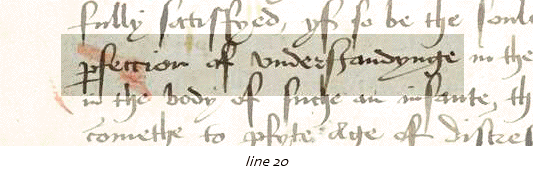 fully satisfyed, yf so be the soul
ꝑfection of vnderstandynge in the
in the body of suche an infante, th
comethe to ꝑfyte Age of distres
line 20